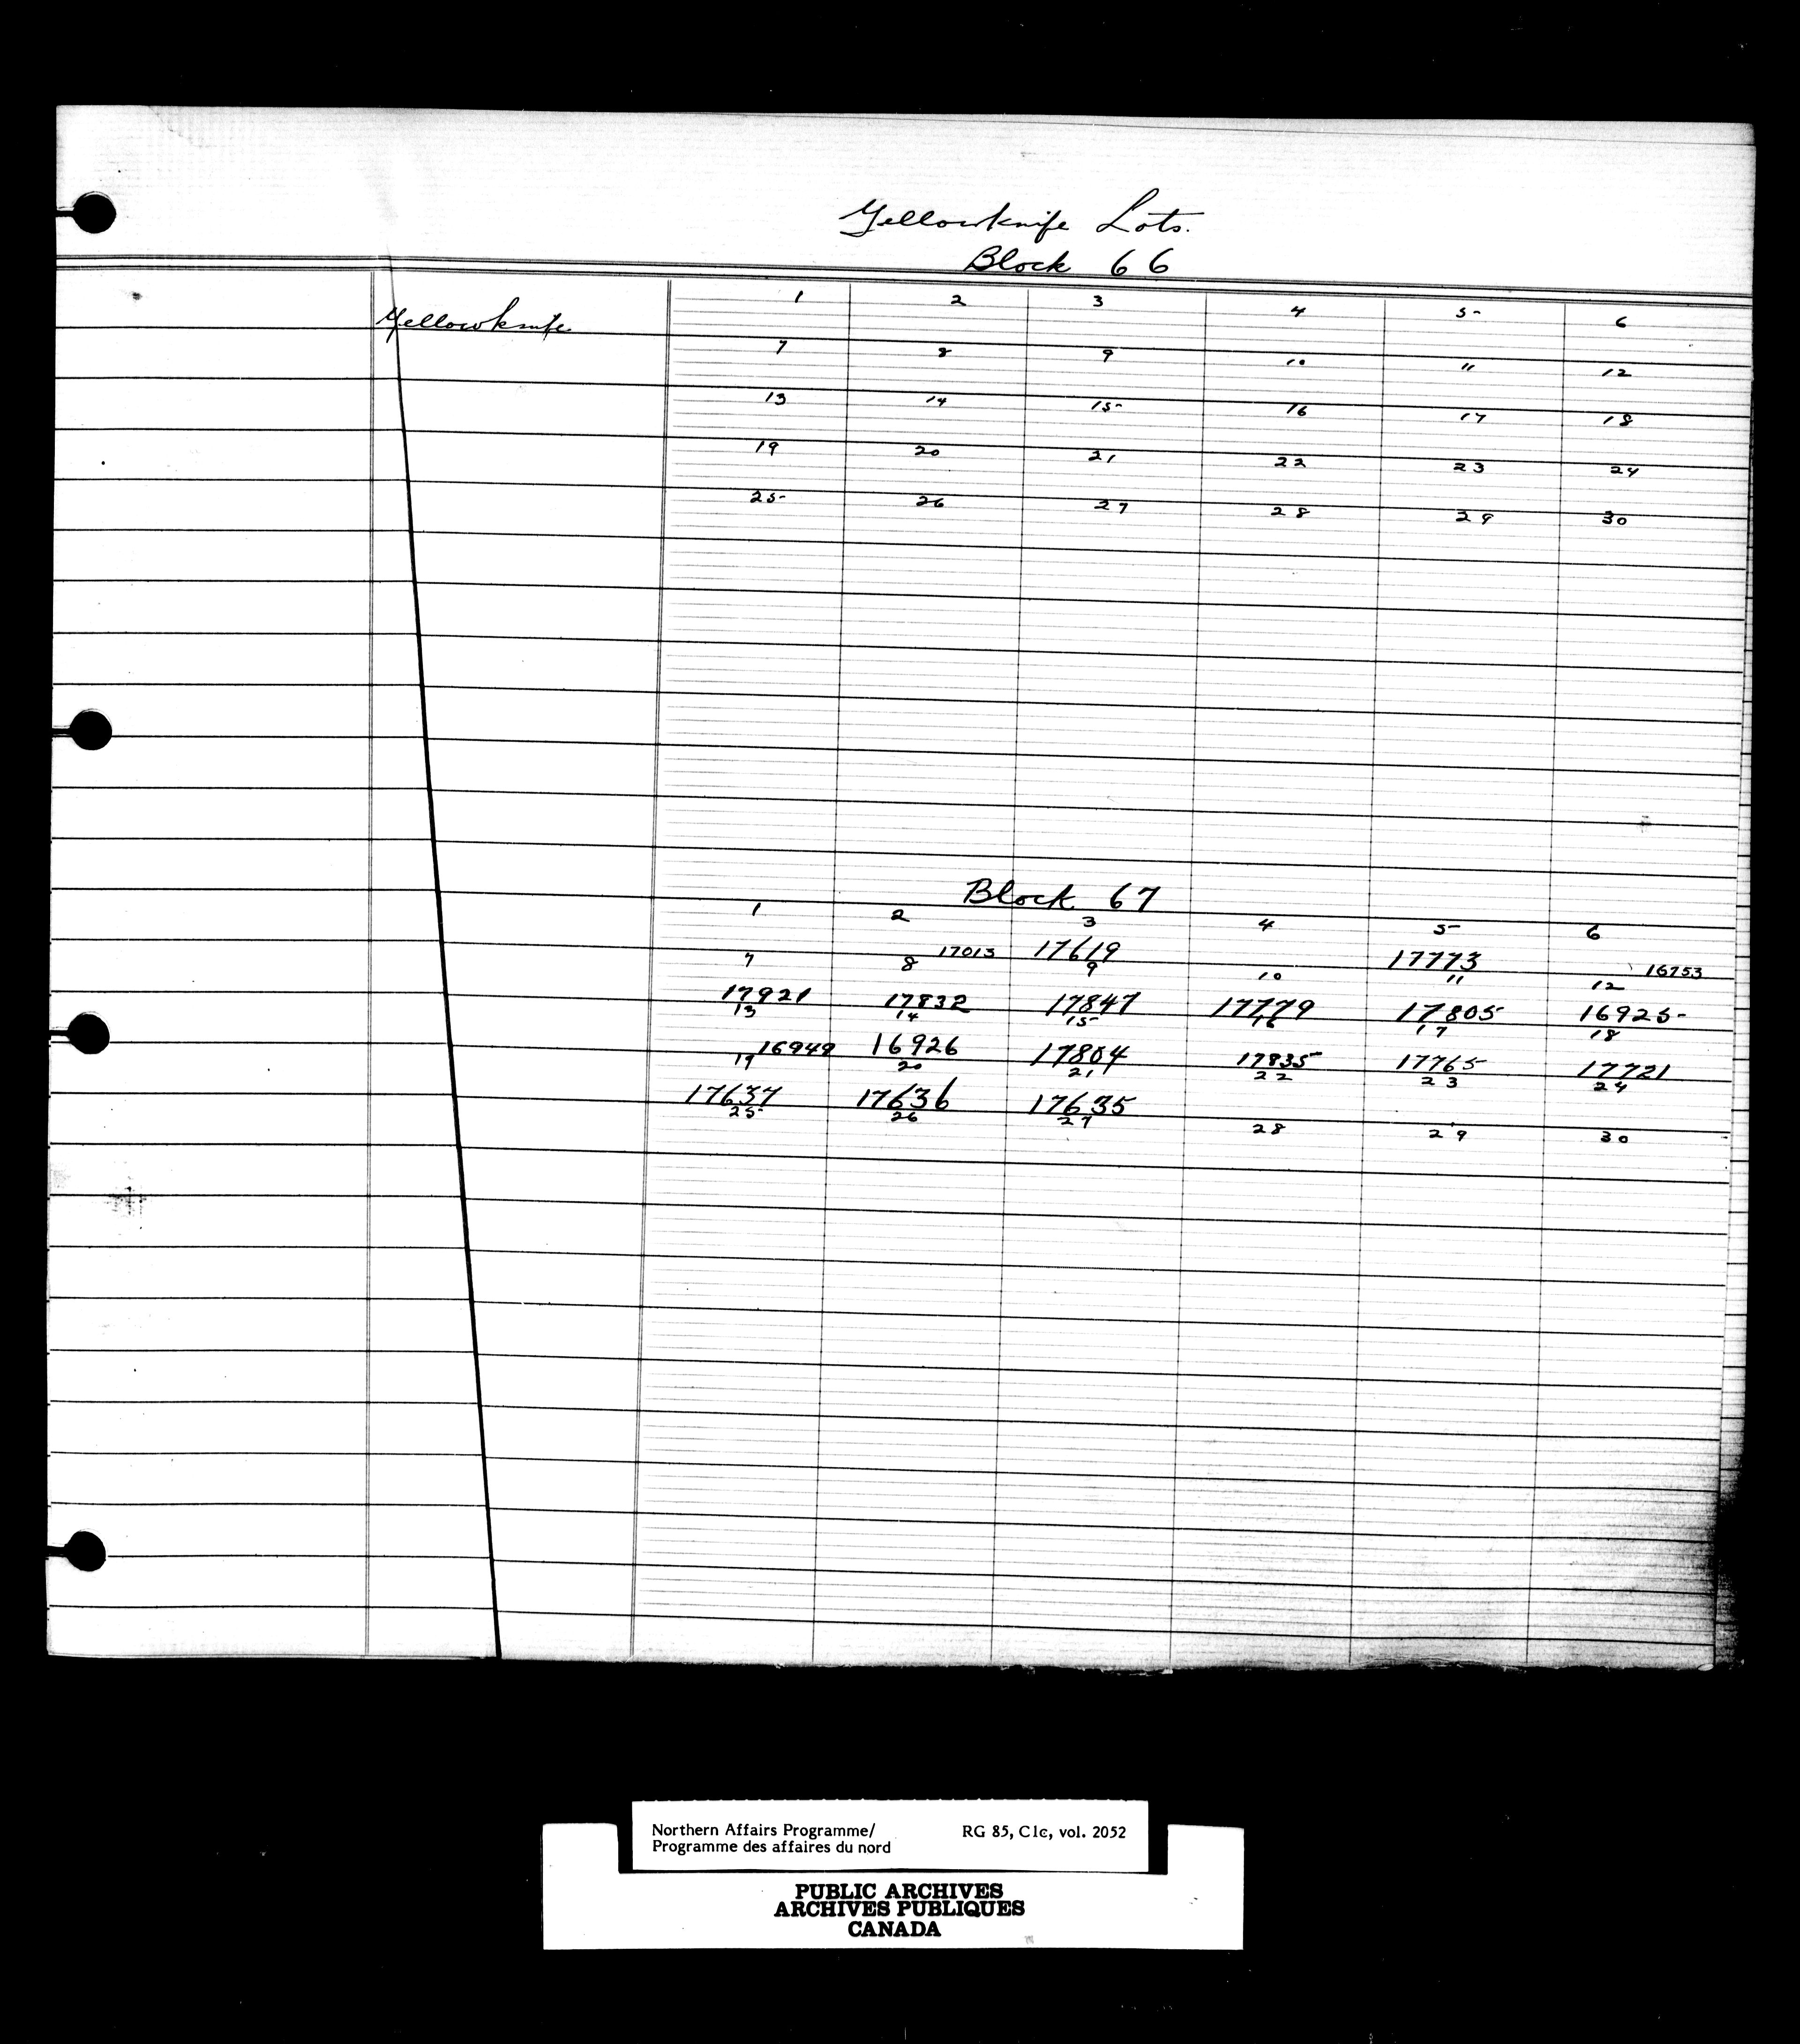 Yellowknife Lots.
Block 66
Yellowknife
1 2 3 4 5 6
7 8 9 10 11 12
13 14 15 16 17 18
19 20 21 22 23 24
25 26 27 28 29 30
Block 67
1 2 3 4 5 6
17013 17619 17773 16753
7 8 9 10 11 12
17921 17832 17847 17779 17805 16925
13 14 15 16 17 18
16949 16926 17804 17835 17765 17721
19 20 21 22 23 24
17637 17636 17635
25 26 27 28 29 30
Northern Affairs Programme/ RG 85, C1c, vol. 2052
Programme des affaires du nord
PUBLIC ARCHIVES
ARCHIVES PUBLIQUES
CANADA